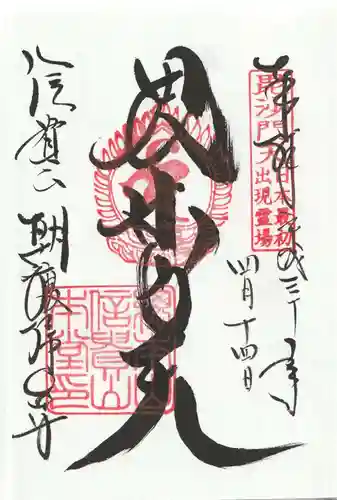 奉拝 平成三十年
四月十四日
毘沙門天出現霊場
日本最初
毘沙門天
信貴山
信貴山 朝護孫子寺